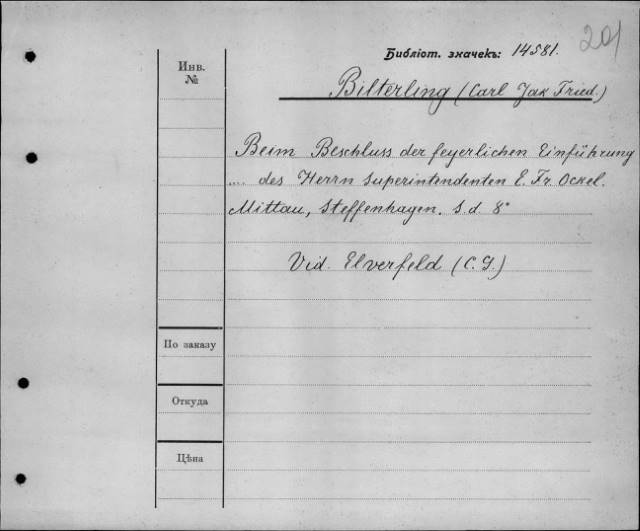 201
Библіот. значекъ: 14581.
Инв.
№
Bilterling (Carl Jak Fried.)
Beim Beschluss der feyerlichen Einführung
.... des Herrn Superintendenten E. Fr. Ockel.
Mittau, Steffenhagen. S. d. 8°
Vid. Elverfeld (C. G.)
По заказу
Откуда
Цѣна